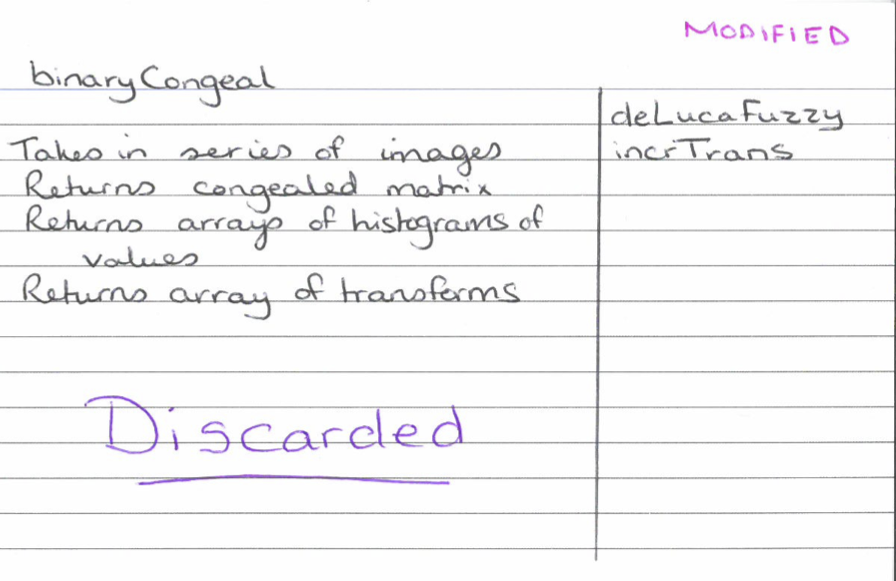 MODIFIED
binaryCongeal
Takes in series of images
Returns congealed matrix
Returns arrays of histograms of
values
Returns array of transforms
Discarded
deLucaFuzzy
incrTrans